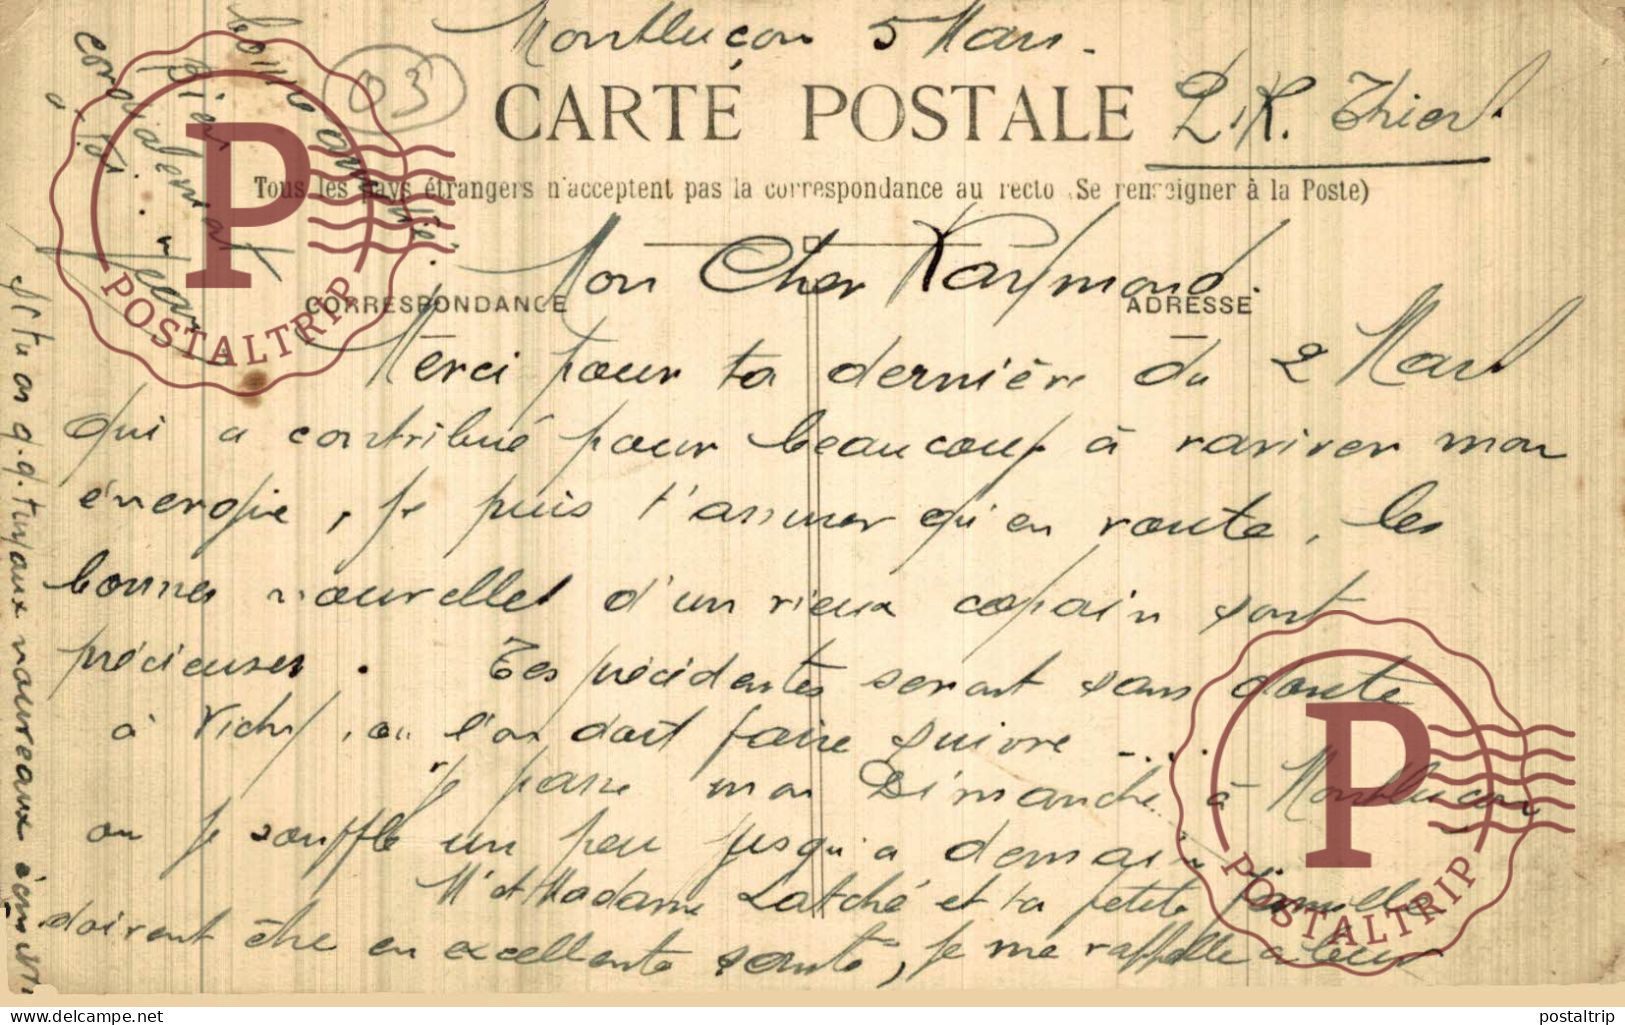 Montluçon 5 Mars.
CARTE POSTALE
P.R. Thiers
03
Tous les pays étrangers n'acceptent pas la correspondance au recto (Se renseigner à la Poste)
Mon Cher Raymond.
CORRESPONDANCE
ADRESSE
Merci pour ta dernière du 2 Mars
qui a contribué pour beaucoup à raviver mon
énergie, je puis t'assurer qu'en route, les
bonnes nouvelles d'un vieux copain sont
précieuses. Tes précédentes seront sans doute
à Vichy, où l'on doit faire suivre ....
Je passe mon Dimanche à Montluçon
où je souffle un peu jusqu'à demain
Mr et Madame Latché et ta petite famille
doivent être en excellente santé, je me rappelle à leur
bonne amitié.
Bien
cordialement
à toi.
Jean
si tu as q.q. tuyaux nouveaux écris
POSTALTRIP
POSTALTRIP
https://www.postaltrip.com
postaltrip